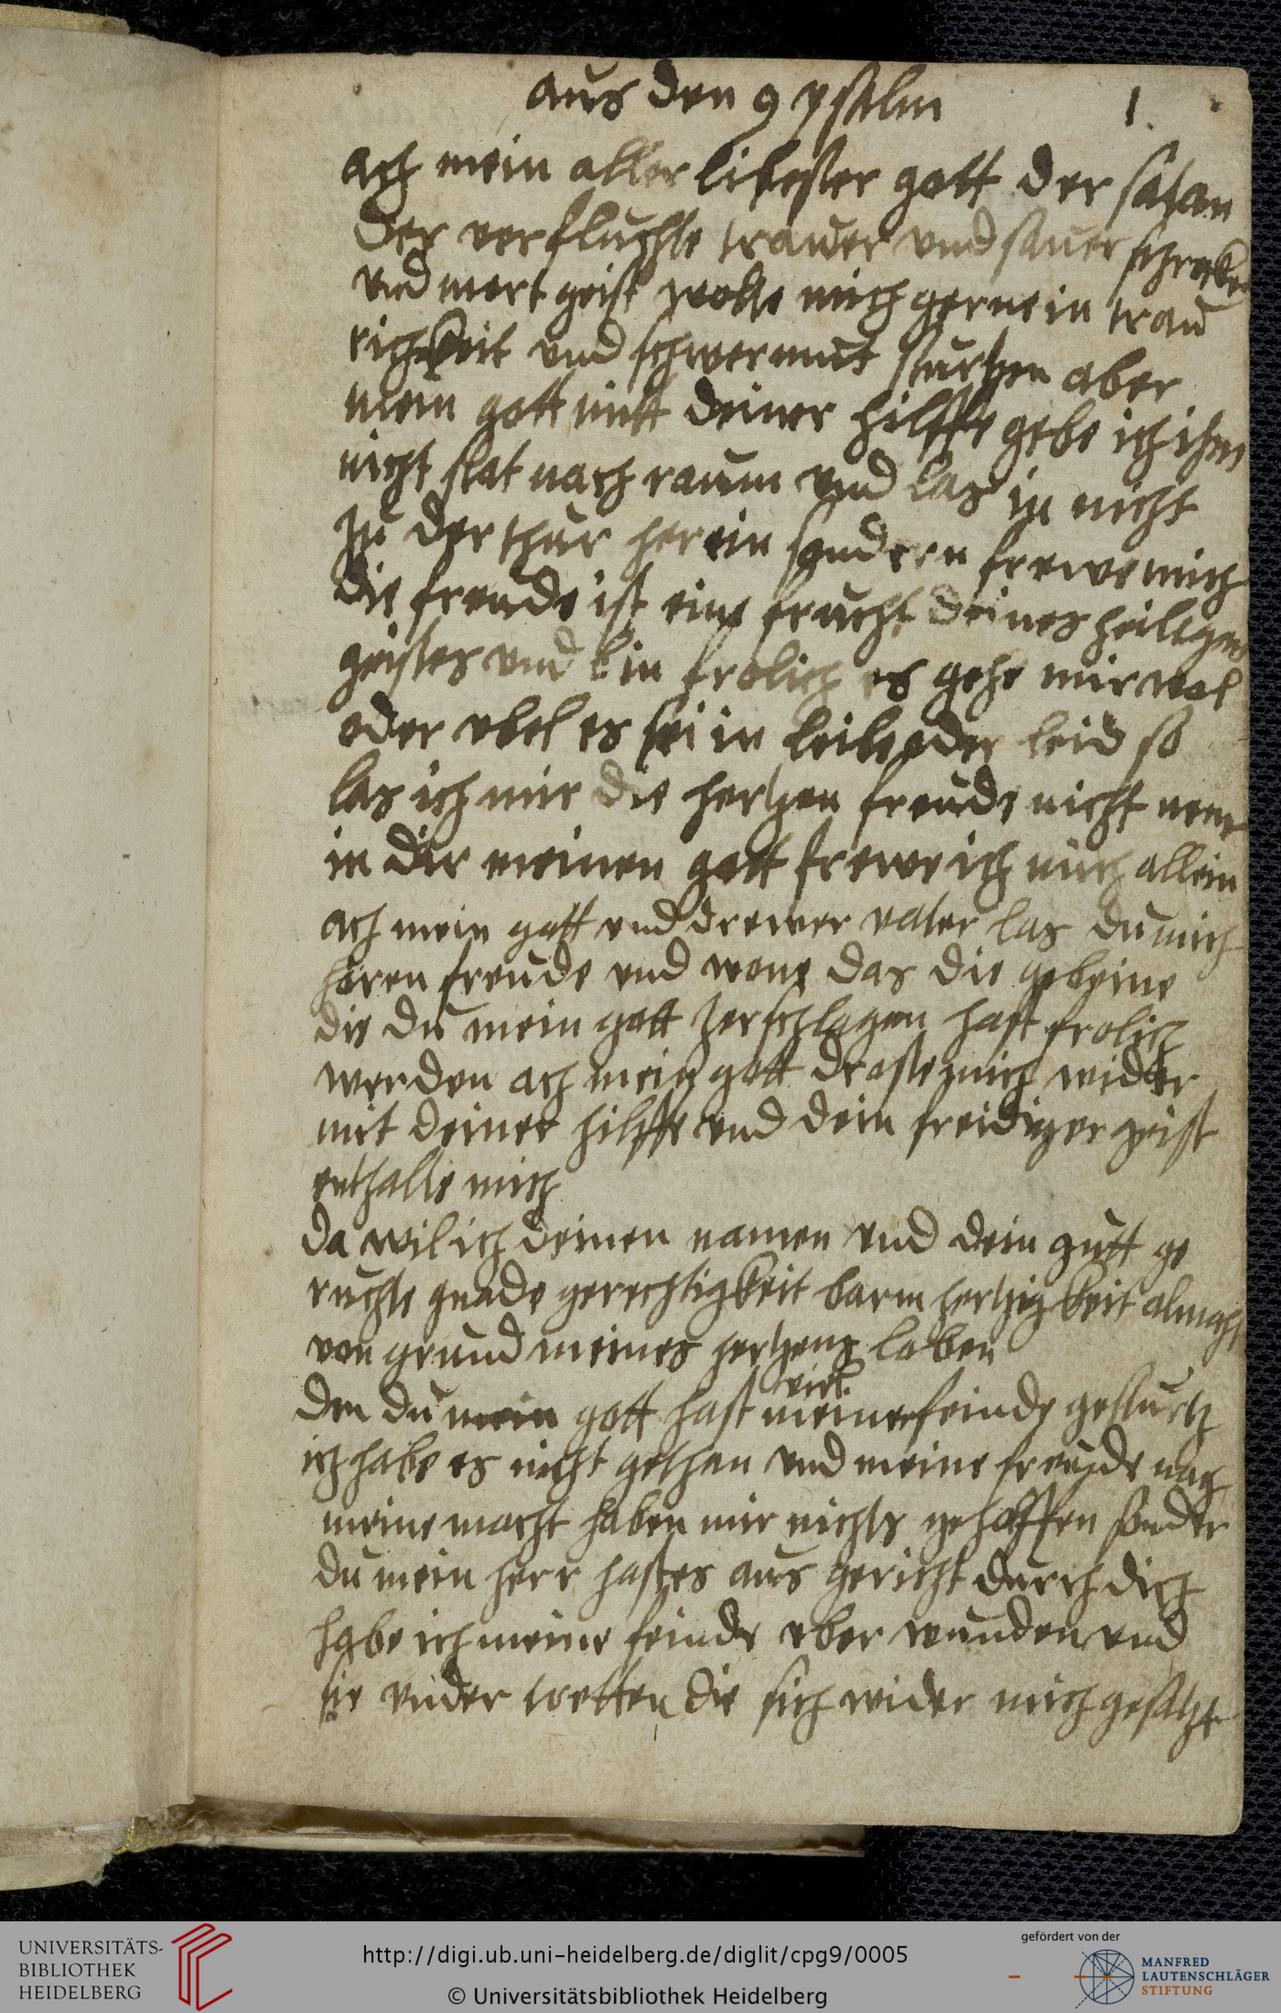 aus den 9 psalm
1.
ach mein aller libester gott der satan
der verfluchte trauer und sauer schrecken
und mort geist wolte mich gerne in trau
richkeit und schwermut sturtzen aber
mein gott mitt deiner hilffe gebe ich ihm
nicht stat noch raum und las in nicht
zu der thur herein sondern frewe mich
die freude ist eine frucht deines heiligen
geistes und bin frolich es gehe mir wol
oder vbel es sei in leibe oder leid so
las ich mir die hertzen freude nicht neme
in dir meinen gott frewe ich mich allein
ach mein gott und drewer vater las du mich
horen freude und wone das die gebeine
die du mein gott zerschlagen hast frolich
werden ach mein gott droste mich wider
mit deiner hilffe und dein freidiger geist
enthalte mich
da wil ich deinen namen und dein gutt ge
ruchte gnade gerechtigkeit barmhertzigkeit almacht
von grund meines hertzens loben
viel
den du mein gott hast meine feinde gesturtz
ich habe es nicht gethan und meine freude noch
meine macht haben mir nichts geholffen sonder
du mein herr hast es aus gericht durch dich
habe ich meine feinde vber wunden und
sie vnder tretten die sich wider mich gesatzt
UNIVERSITÄTS-
BIBLIOTHEK
HEIDELBERG
http://digi.ub.uni-heidelberg.de/diglit/cpg9/0005
© Universitätsbibliothek Heidelberg
gefördert von der
MANFRED
LAUTENSCHLÄGER
STIFTUNG